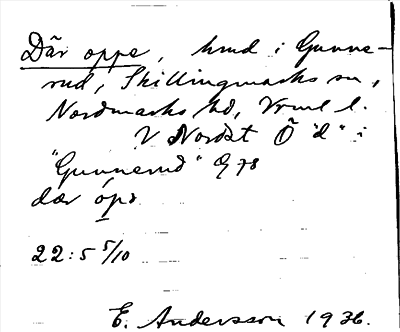 Där oppe, hmd i Gunne-
rud, Skillingmarks sn,
Nordmarks hd, Vrml l.
V Nordst Ö "d" i
"Gunnerud" G 78
dær óps
22:5 5/10
E. Andersson 1936.